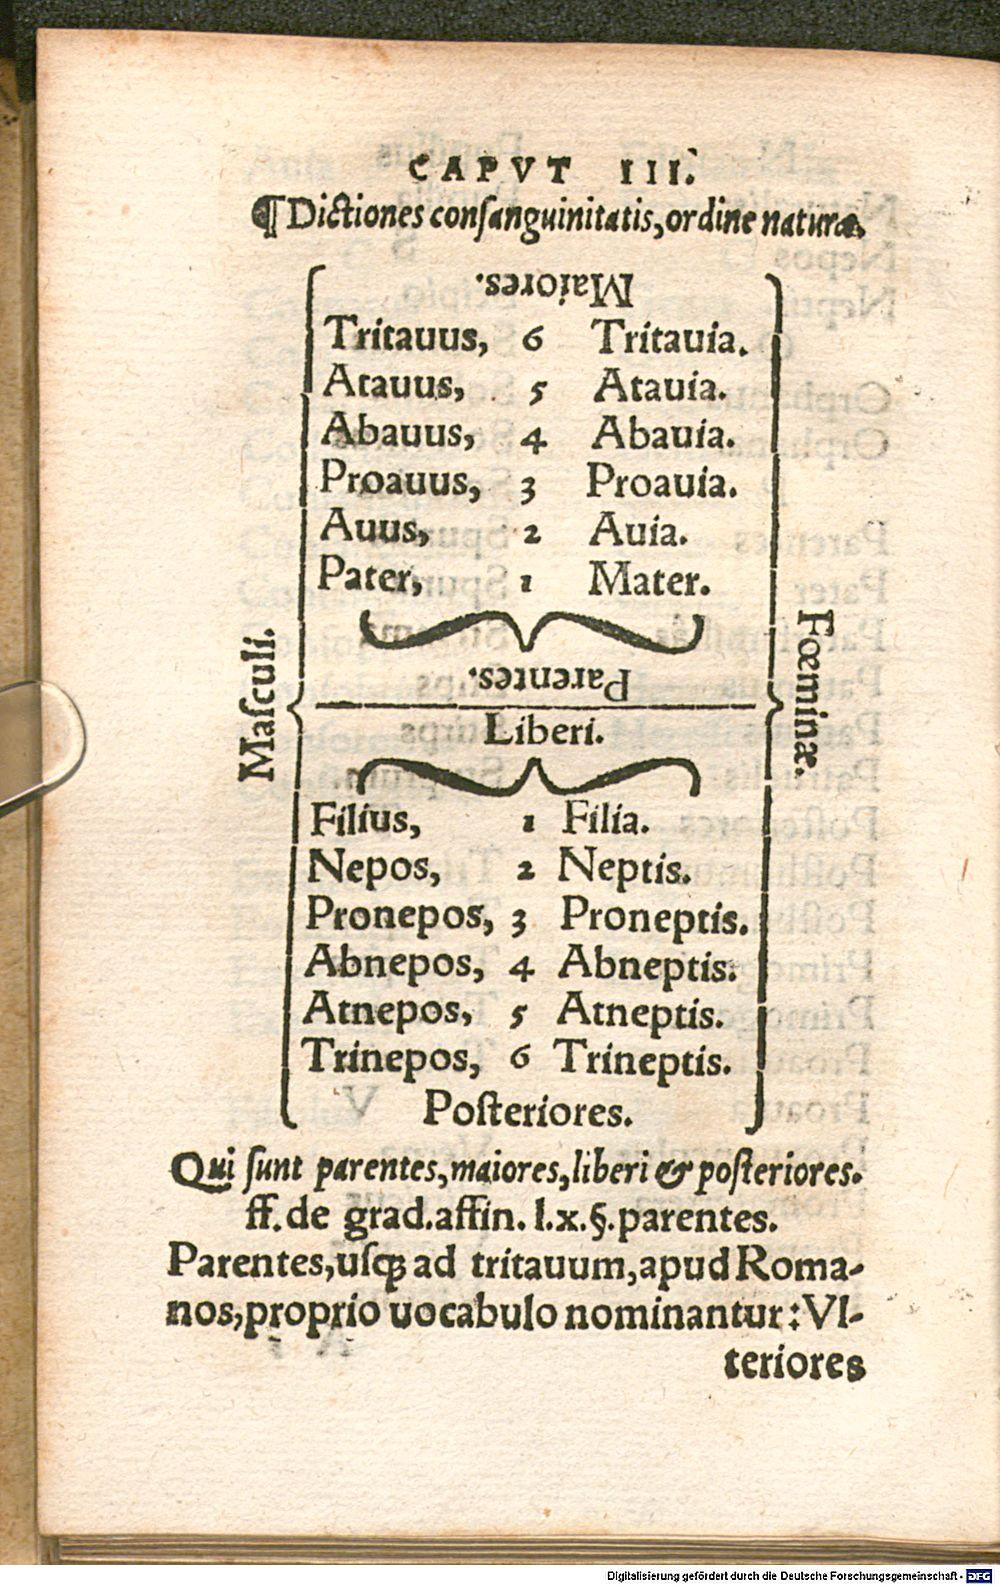 CAPVT III.
¶Dictiones conſanguinitatis,ordine naturæ.
Maiores.
Tritauus, 6 Tritauia.
Atauus, 5 Atauia.
Abauus, 4 Abauia.
Proauus, 3 Proauia.
Auus, 2 Auia.
Pater, 1 Mater.
Parentes.
Maſculi.
Fœminæ.
Liberi.
Filius, 1 Filia.
Nepos, 2 Neptis.
Pronepos, 3 Proneptis.
Abnepos, 4 Abneptis.
Atnepos, 5 Atneptis.
Trinepos, 6 Trineptis.
Poſteriores.
Qui ſunt parentes,maiores,liberi & poſteriores.
ff.de grad.affin. l.x.§.parentes.
Parentes,uſꝗ ad tritauum,apud Roma-
nos,proprio uocabulo nominantur: Vl-
teriores
Digitalisierung gefördert durch die Deutsche Forschungsgemeinschaft - DFG